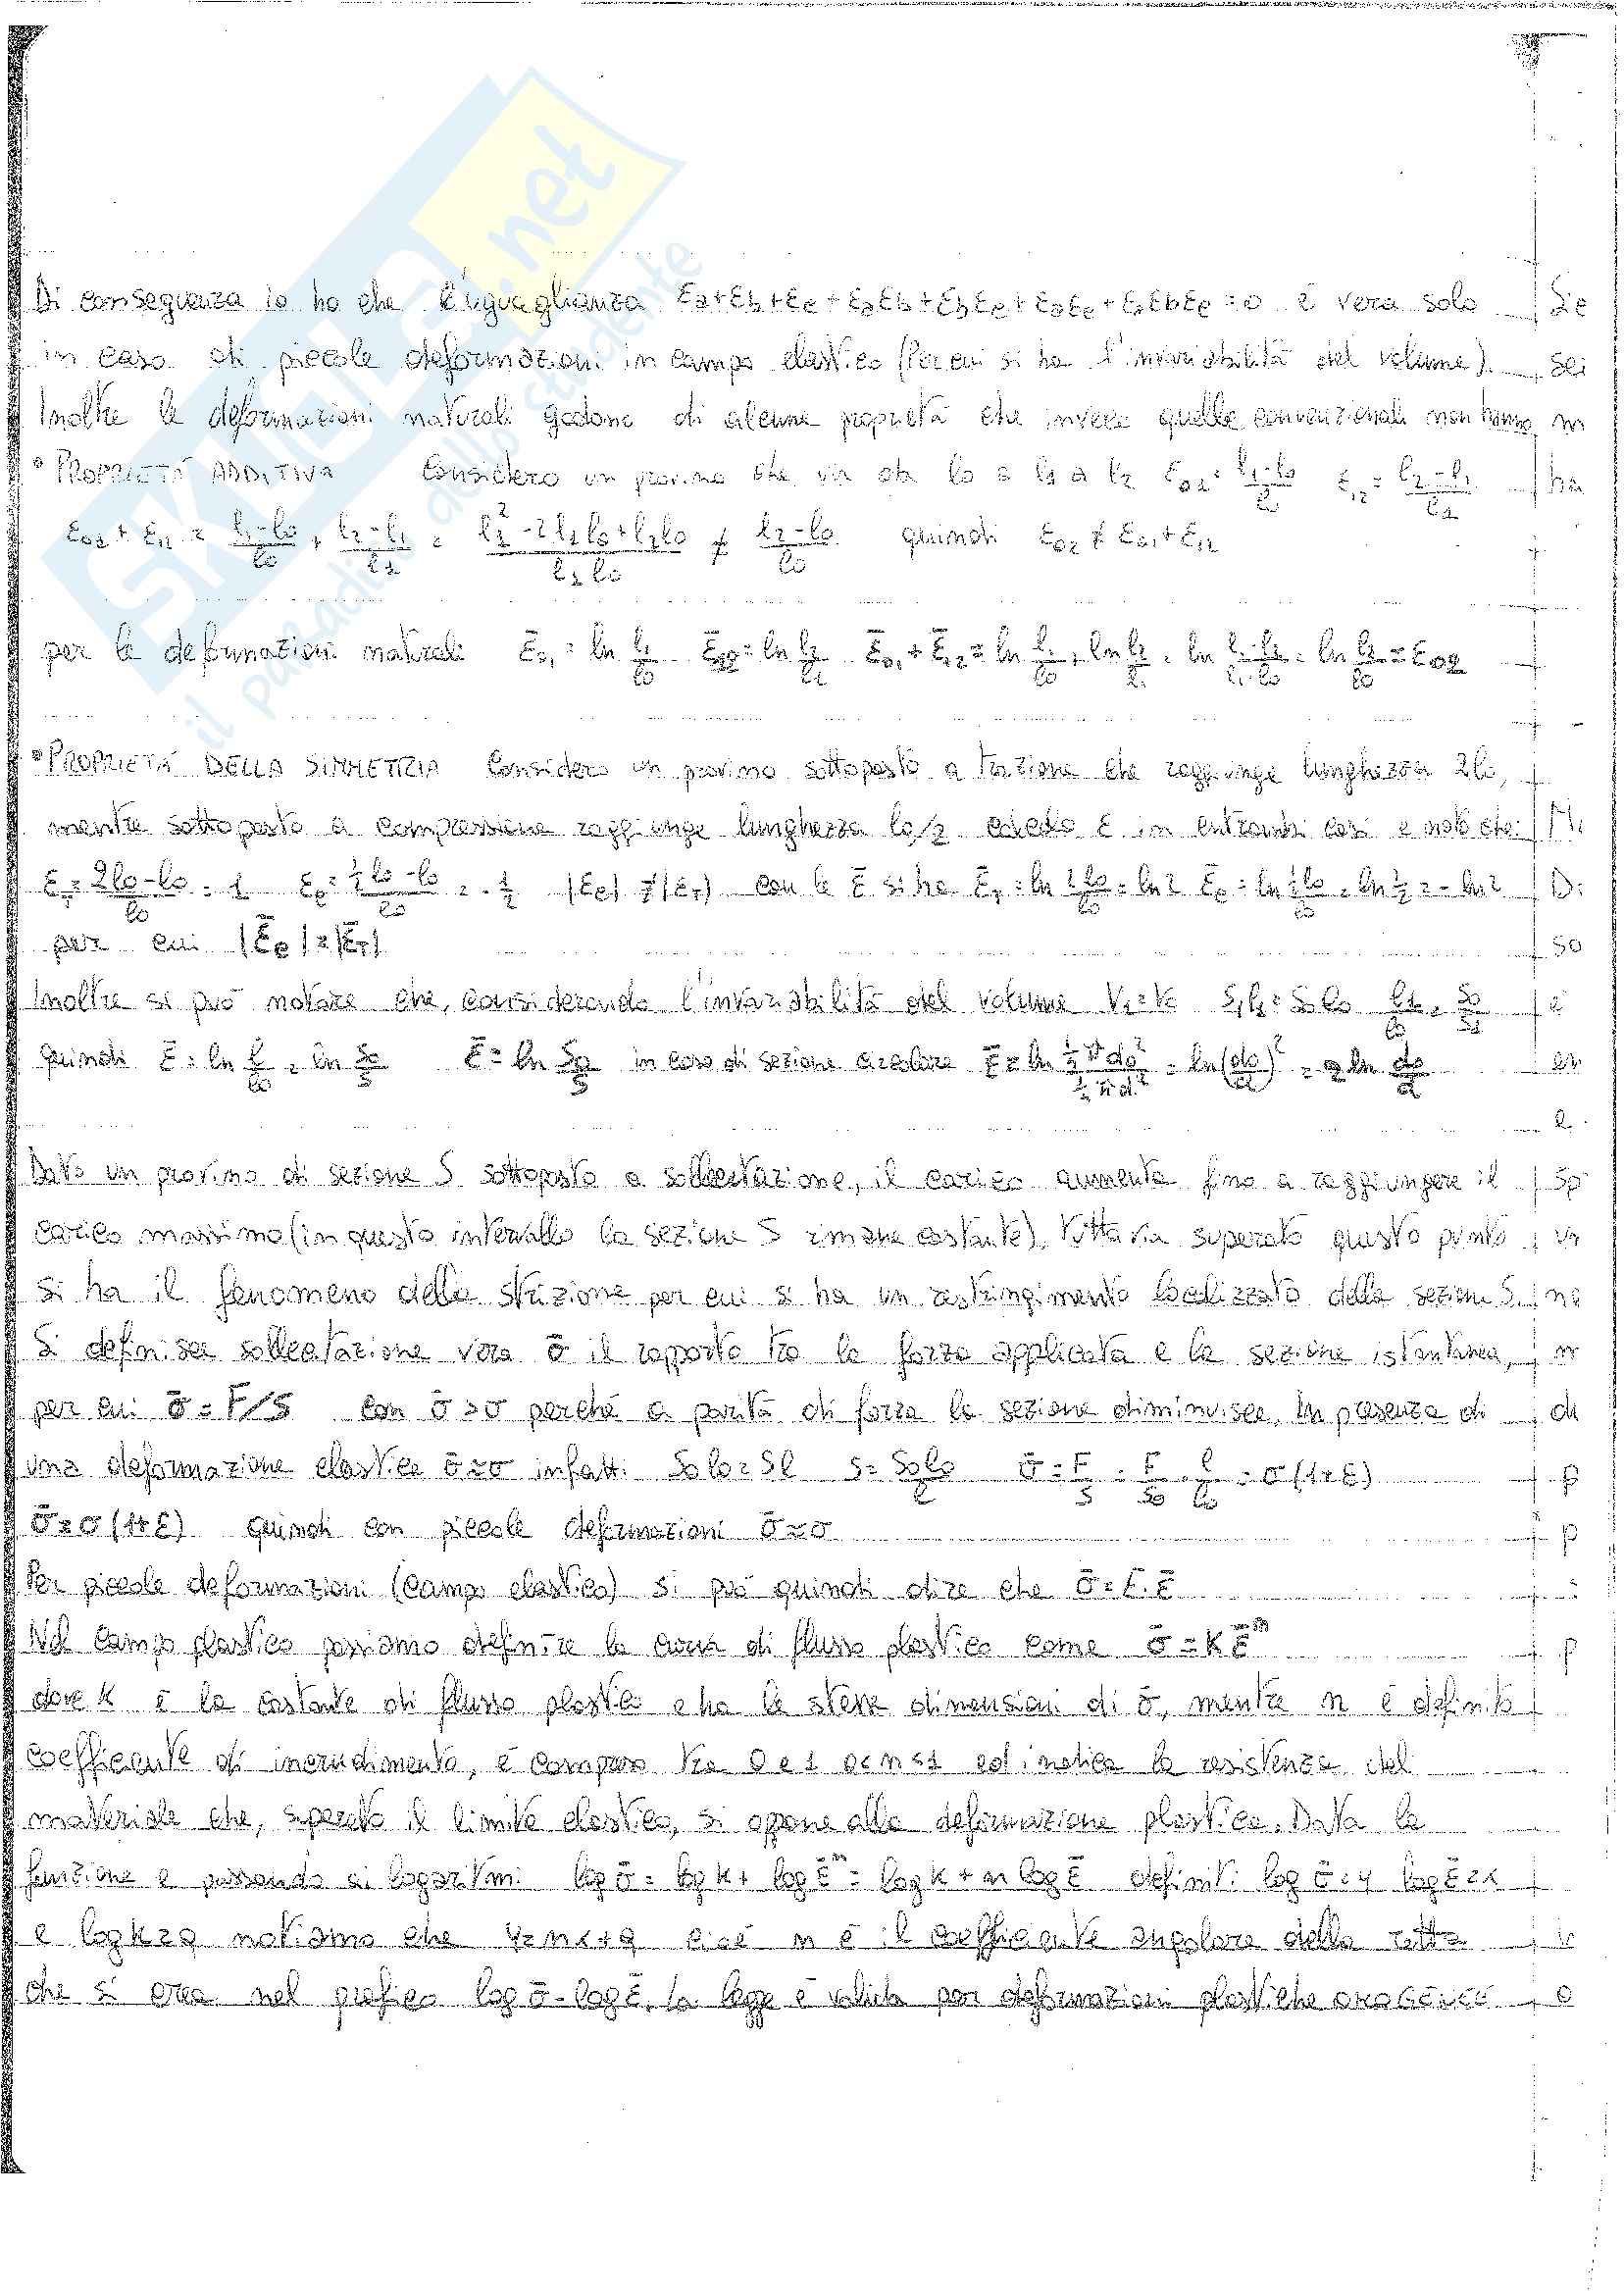 SKUOLA.net
il paradiso dello studente
Di conseguenza io ho che l'uguaglianza εa+εb+εc+εaεb+εbεc+εaεc+εaεbεc=0 è vera solo
in caso di piccole deformazioni in campo elastico (per cui si ha l'invariabilità del volume).
Inoltre le deformazioni naturali godono di alcune proprietà che invece quelle convenzionali non hanno
° PROPRIETÀ ADDITIVA Considero un provino che va da l0 a l1 a l2 ε01 = (l1-l0)/l0 ε12 = (l2-l1)/l1
ε01 + ε12 = (l1-l0)/l0 + (l2-l1)/l1 = (l1²-2l1l0+l2l0)/(l1l0) ≠ (l2-l0)/l0 quindi ε02 ≠ ε01+ε12
per le deformazioni naturali ε̄01 = ln l1/l0 ε̄12 = ln l2/l1 ε̄01 + ε̄12 = ln l1/l0 + ln l2/l1 = ln (l1·l2)/(l1·l0) = ln l2/l0 = ε̄02
° PROPRIETÀ DELLA SIMMETRIA Considero un provino sottoposto a trazione che raggiunge lunghezza 2l0,
mentre sottoposto a compressione raggiunge lunghezza l0/2 calcolo ε in entrambi casi e noto che:
εT = (2l0-l0)/l0 = 1 εc = (½l0-l0)/l0 = -½ |εc| ≠ |εT| con le ε̄ si ha ε̄T = ln 2l0/l0 = ln2 ε̄c = ln ½l0/l0 = ln ½ = -ln2
per cui |ε̄c| = |ε̄T|
Inoltre si può notare che, considerando l'invariabilità del volume V1=V0 S1l1=S0l0 l1/l0 = S0/S1
quindi ε̄ = ln l/l0 = ln S0/S ε̄ = ln S0/S in caso di sezione circolare ε̄ = ln (¼πd0²)/(¼πd²) = ln(d0/d)² = 2 ln d0/d
Dato un provino di sezione S sottoposto a sollecitazione, il carico aumenta fino a raggiungere il
carico massimo (in questo intervallo la sezione S rimane costante). Tuttavia superato questo punto
si ha il fenomeno della strizione per cui si ha un restringimento localizzato della sezione S.
Si definisce sollecitazione vera σ̄ il rapporto tra la forza applicata e la sezione istantanea,
per cui σ̄ = F/S con σ̄ > σ perché a parità di forza la sezione diminuisce. In presenza di
una deformazione elastica σ̄=σ infatti S0l0=Sl S=S0l0/l σ̄ = F/S = F/S0 · l/l0 = σ(1+ε)
σ̄=σ(1+ε) quindi con piccole deformazioni σ̄=σ
Per piccole deformazioni (campo elastico) si può quindi dire che σ̄=E·ε̄
Nel campo plastico possiamo definire la curva di flusso plastico come σ̄ = K ε̄ⁿ
dove K è la costante di flusso plastico e ha le stesse dimensioni di σ̄, mentre n è definito
coefficiente di incrudimento, è compreso tra 0 e 1 0<n<1 ed indica la resistenza del
materiale che, superato il limite elastico, si oppone alla deformazione plastica. Data la
funzione e passando ai logaritmi log σ̄ = log K + log ε̄ⁿ = log K + n log ε̄ definiti log σ̄=y log ε̄=x
e log K=q notiamo che y=nx+q cioè n è il coefficiente angolare della retta
che si crea nel grafico log σ̄-log ε̄. La legge è valida per deformazioni plastiche omogenee